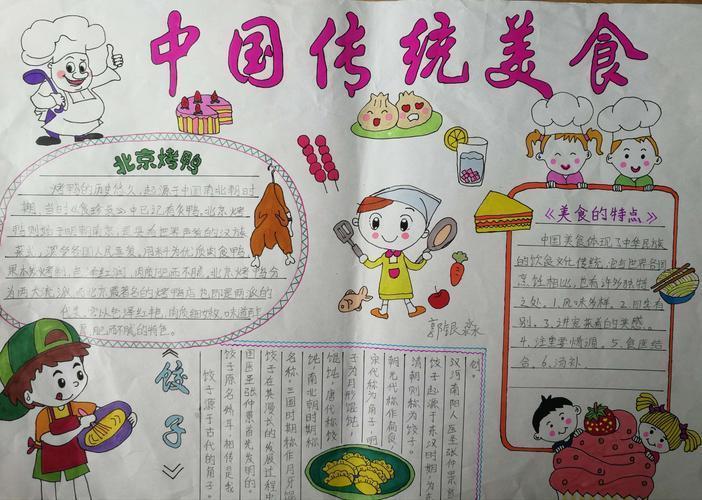 中国传统美食
北京烤鸭
烤鸭的历史悠久,起源于中国南北朝时
期,当时《食珍录》中已记有炙鸭,北京烤
是具有世界声誉的汉族
菜式,深受各国人民喜爱。用料为优质肉食鸭
果木炭火烤制,色泽红润,肉质肥而不腻。北京烤鸭分
为两大流派,而北京最著名的烤鸭店也即是两派的
代表。它以色泽红艳,肉质细嫩,味道醇厚
肥而不腻的特色。
郭银淼
《美食的特点》
中国美食体现了中华民族
的饮食文化传统,它与世界各国
烹饪相比,也有许多独特
之处。1.风味多样。2.四季有
别。3.讲究菜肴的美感。
4.注重情调。5.食医结
合。6.汤补
《饺子》
饺子源于古代的角子。
饺子原名娇耳 相传是我
国医圣张仲景首先发明的,
饺子在其漫长的发展过程中
名称,三国时期称作月牙馄
饨,南北朝时期称
馄饨,唐代称饺
子为月形馄饨,
宋代称为角子,明
朝元代称作扁食
清朝则称为饺子。
饺子起源于东汉时期,为东
汉河南阳人医圣张仲景首
创。